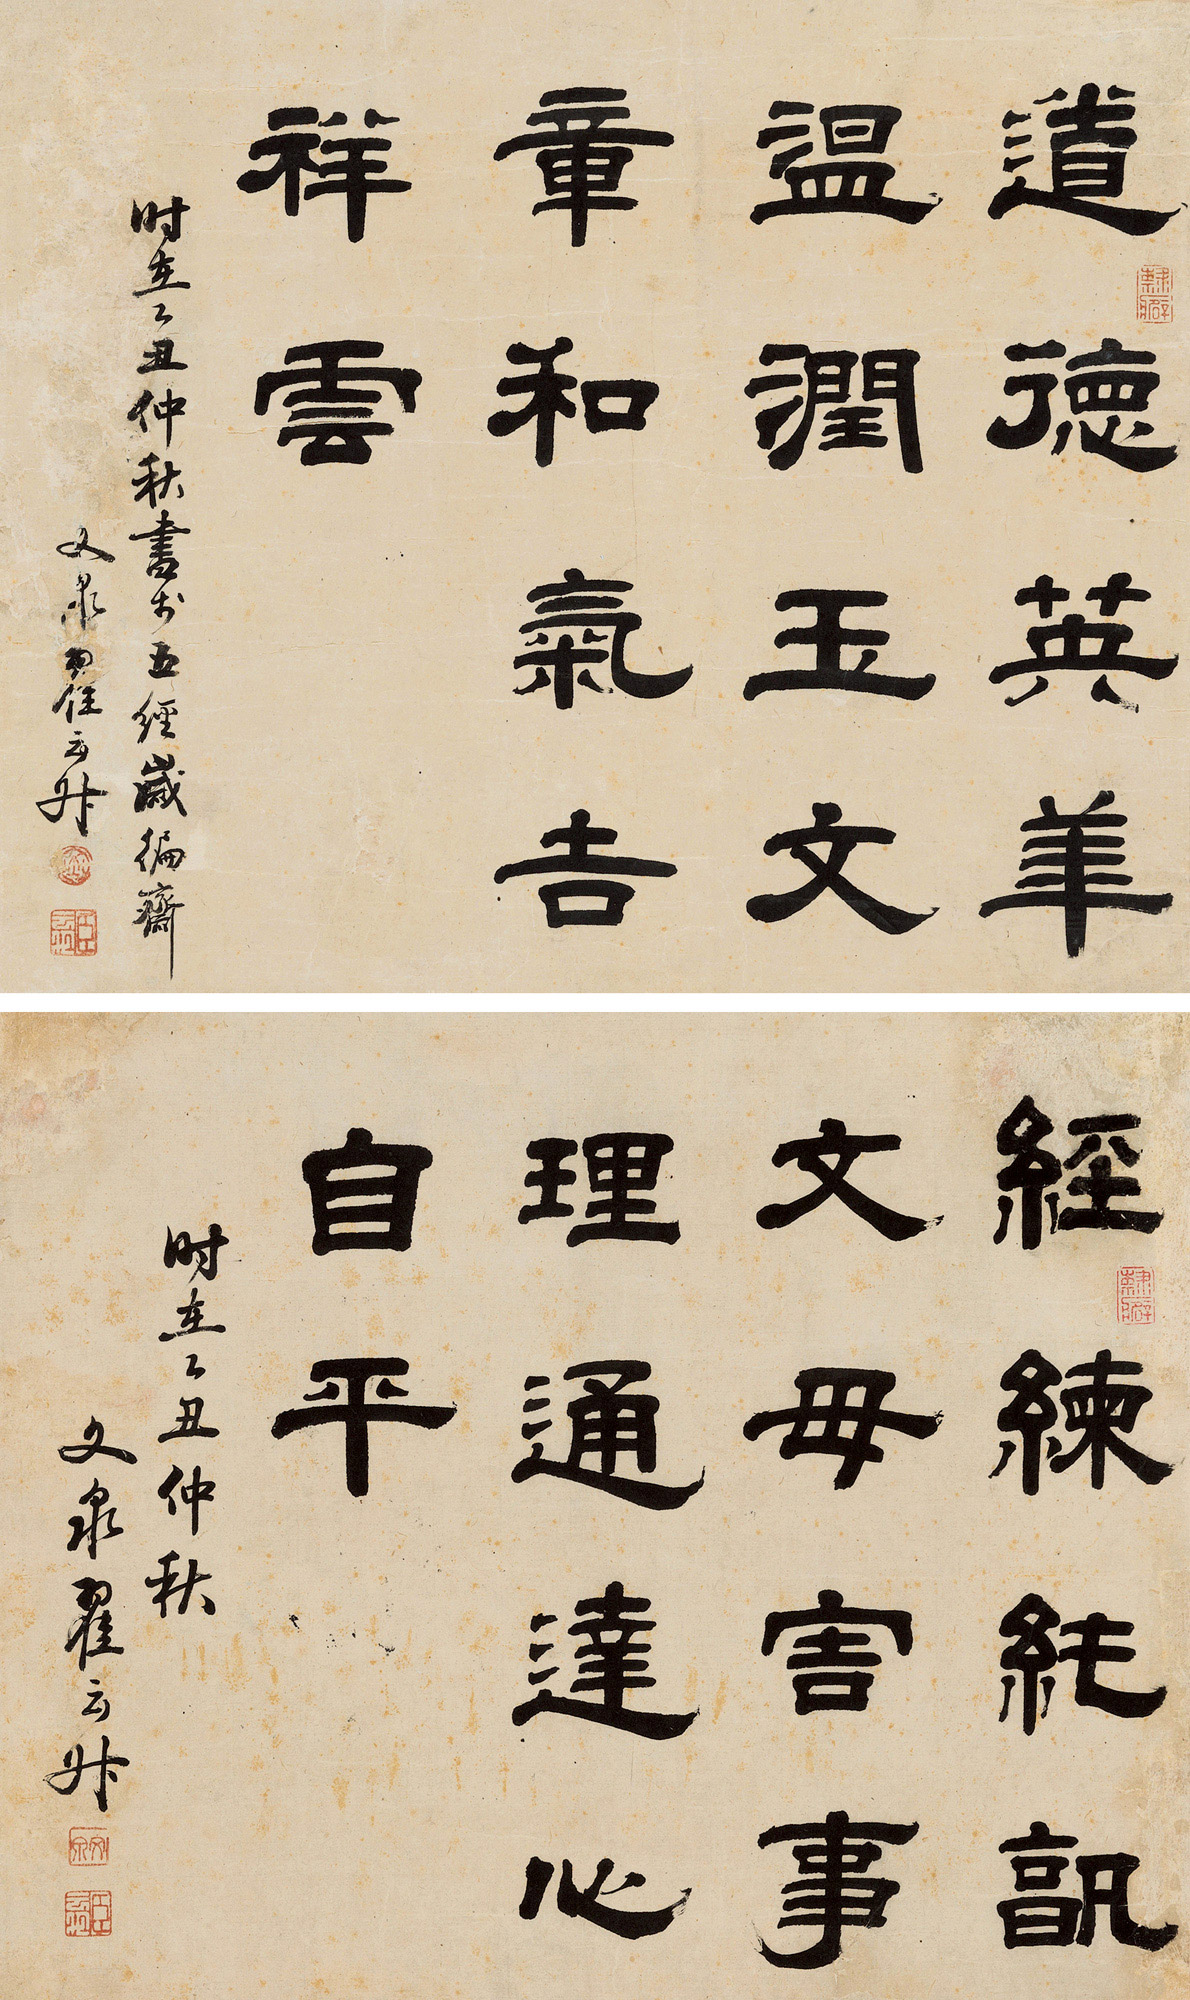 道德英華
溫潤玉文
章和氣吉
祥雲
時在乙丑仲秋書於五經歲徧齋
文泉翟云升
隸癖
經練純孰
文毋害事
理通達心
自平
時在乙丑仲秋
文泉翟云升
隸癖